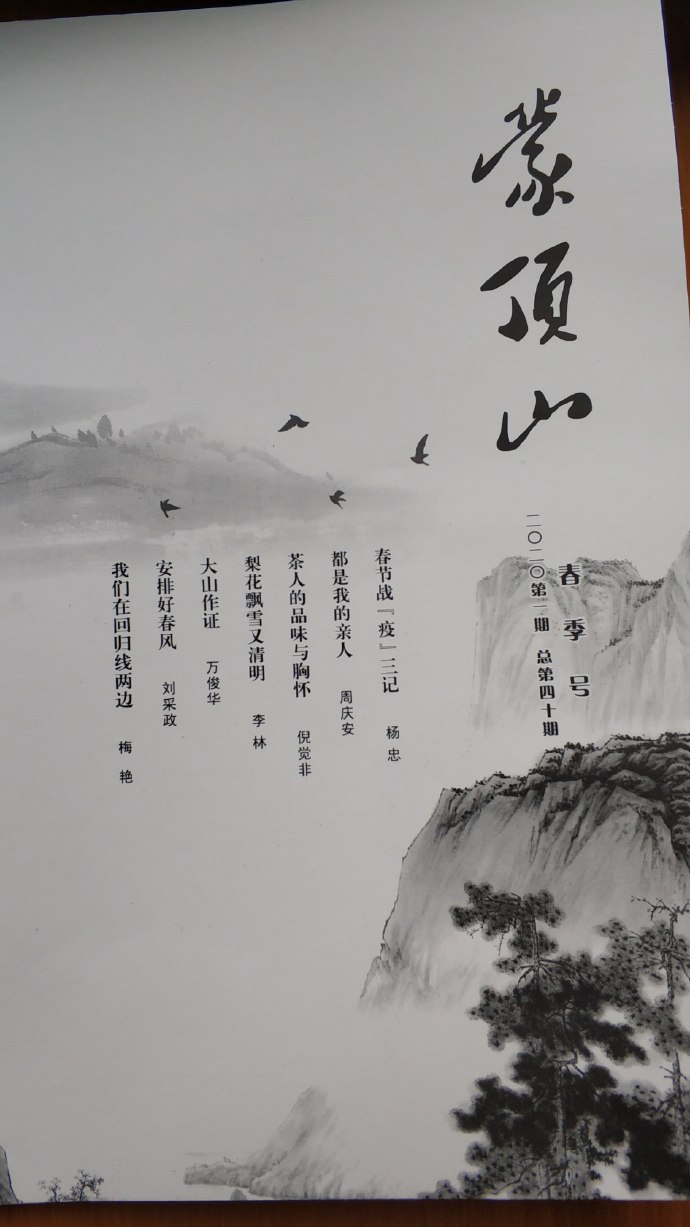 蒙顶山
春季号
二〇二〇第一期 总第四十期
春节战『疫』三记 杨忠
都是我的亲人 周庆安
茶人的品味与胸怀 倪觉非
梨花飘雪又清明 李林
大山作证 万俊华
安排好春风 刘采政
我们在回归线两边 梅艳